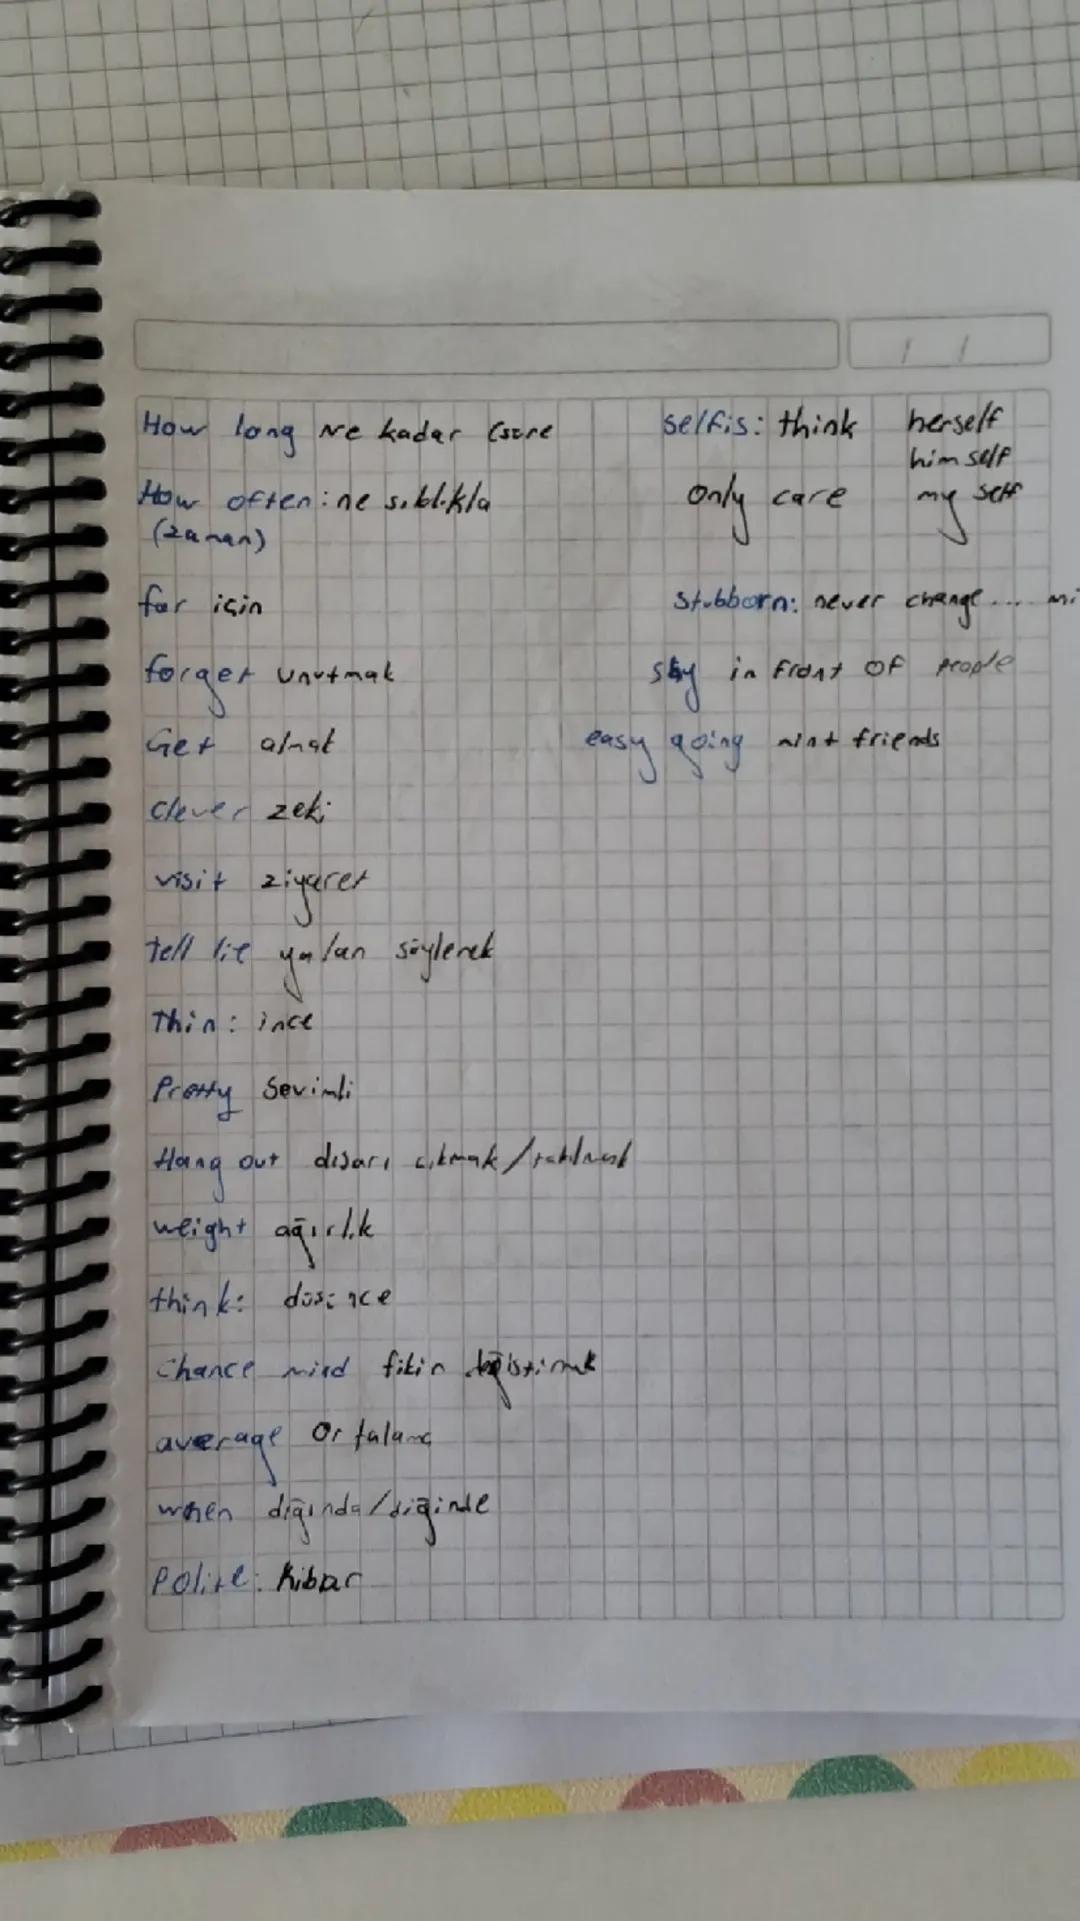 How long Ne kadar (süre
How often: ne sıklıkla
(zaman)
for için
forget unutmak
Get almak
clever zeki
visit ziyaret
tell lie yalan söylemek
Thin: ince
Pretty Sevimli
Hang out dışarı çıkmak/takılmak
weight ağırlık
think: düşünce
Chance mind fikin değiştirmek
average Ortalama
when dığında/diğinde
Polite: Kibar
selfis: think herself
him self
only care my self
Stubborn: never change... mi
shy in front of people
easy going friends